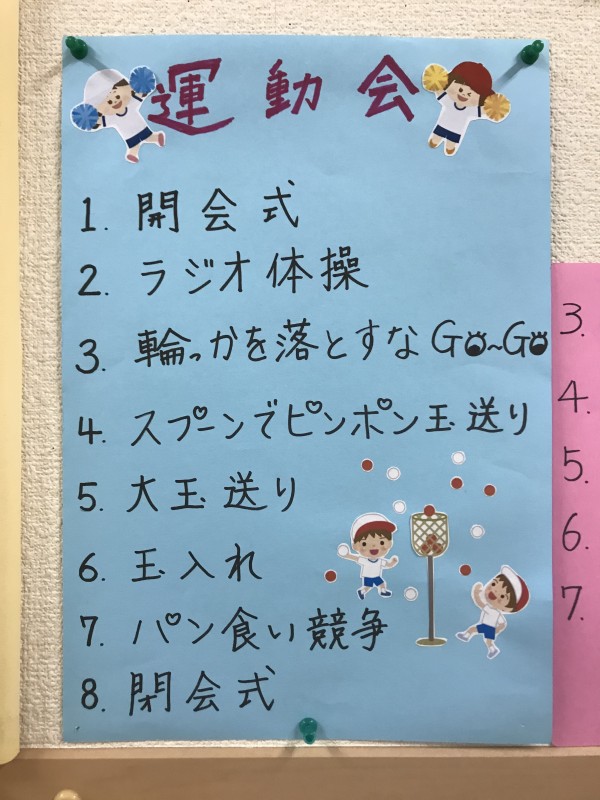 運動会
1. 開会式
2. ラジオ体操
3. 輪っかを落とすなGo~Go
4. スプーンでピンポン玉送り
5. 大玉送り
6. 玉入れ
7. パン食い競争
8. 閉会式
3.
4.
5.
6.
7.